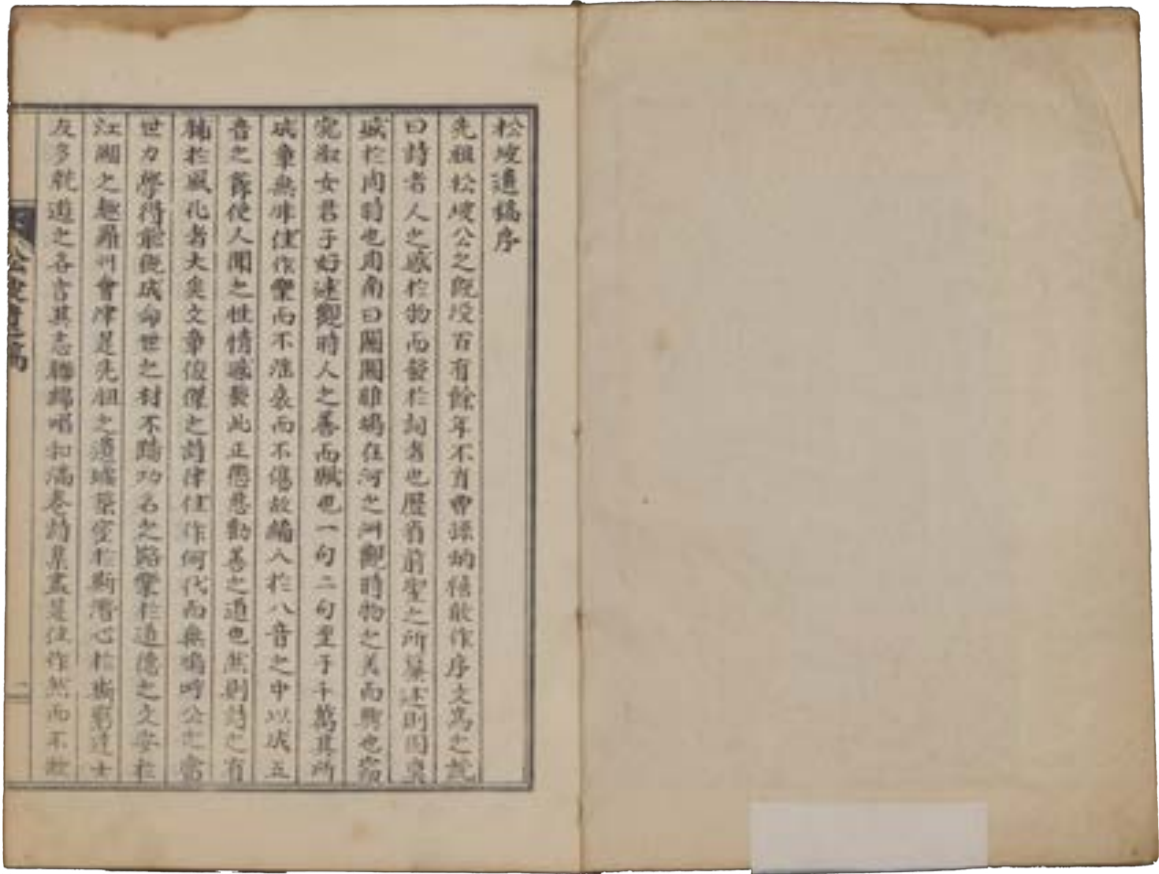 松坡遺稿序
先祖松坡公之旣歿百有餘年不肖曾孫炳禧敢作序文爲之說
曰詩者人之感於物而發於詞者也歷省前聖之所纂述則國
感於周詩也周南曰關關雎鳩在河之洲觀時物之美而興也窈
窕淑女君子好逑觀時人之善而賦也一句二句至于千萬其所
成章無非佳作樂而不淫哀而不傷故編入於八音之中以成五
音之節使人聞之性情感發此正懲惡勸善之道也然則詩之有
補於風化者大矣文章俊傑之詩律佳作何代而無嗚呼公之當
世力學得能旣成命世之材不踏功名之路樂於道德之文安於
江湖之趣羅州會津是先祖之遺墟築室於斯潛心於斯窮達士
友多就遊之各言其志聯綿唱和滿卷詩集盡是佳作然而不敢
松坡遺稿
一